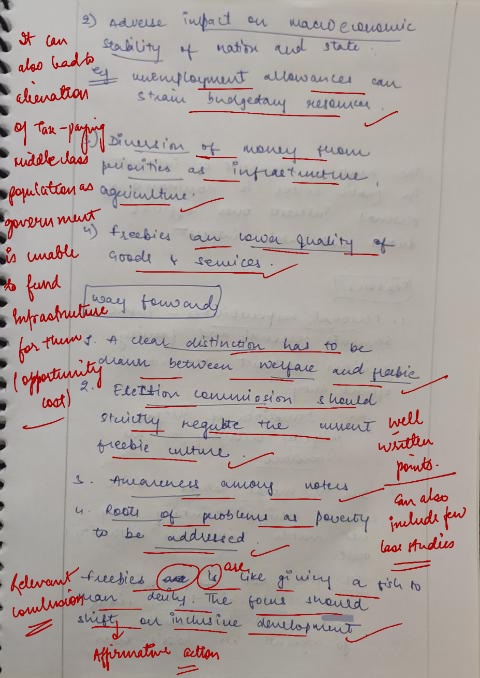 2) Adverse impact on macroeconomic
stability of nation and state.
eg unemployment allowances can
strain budgetary resources.
3) Diversion of money from
priorities as infrastructure,
agriculture.
4) Freebies can lower quality of
Goods & services.
Way forward
1. A clear distinction has to be
drawn between welfare and freebie
2. Election commission should
strictly regulate the current
freebie culture
3. Awareness among voters
4. Roots of problems as poverty
to be addressed.
Freebies is like giving a fish to
man daily. The focus should
shift on inclusive development
It can
also lead to
alienation
of tax-paying
middle class
population as
government
is unable
to fund
Infrastructure
for them
(opportunity
cost)
well
written
points.
Can also
include few
case studies
are
Relevant
conclusion
Affirmative action